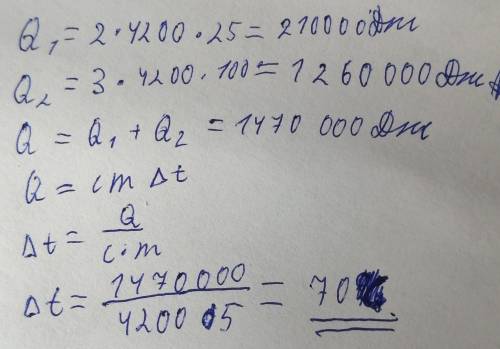 Q₁ = 2 · 4200 · 25 = 210000 Дж
Q₂ = 3 · 4200 · 100 = 1 260 000 Дж
Q = Q₁ + Q₂ = 1470 000 Дж
Q = cm Δt
Δt = Q / c·m
Δt = 1470000 / 4200 · 5 = 70